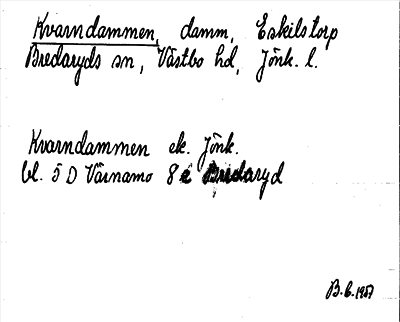 Kvarndammen, damm, Eskilstorp
Bredaryds sn, Västbo hd, Jönk. l.
Kvarndammen ek. Jönk.
bl. 5 D Värnamo 8 e Bredaryd
B.G. 1957